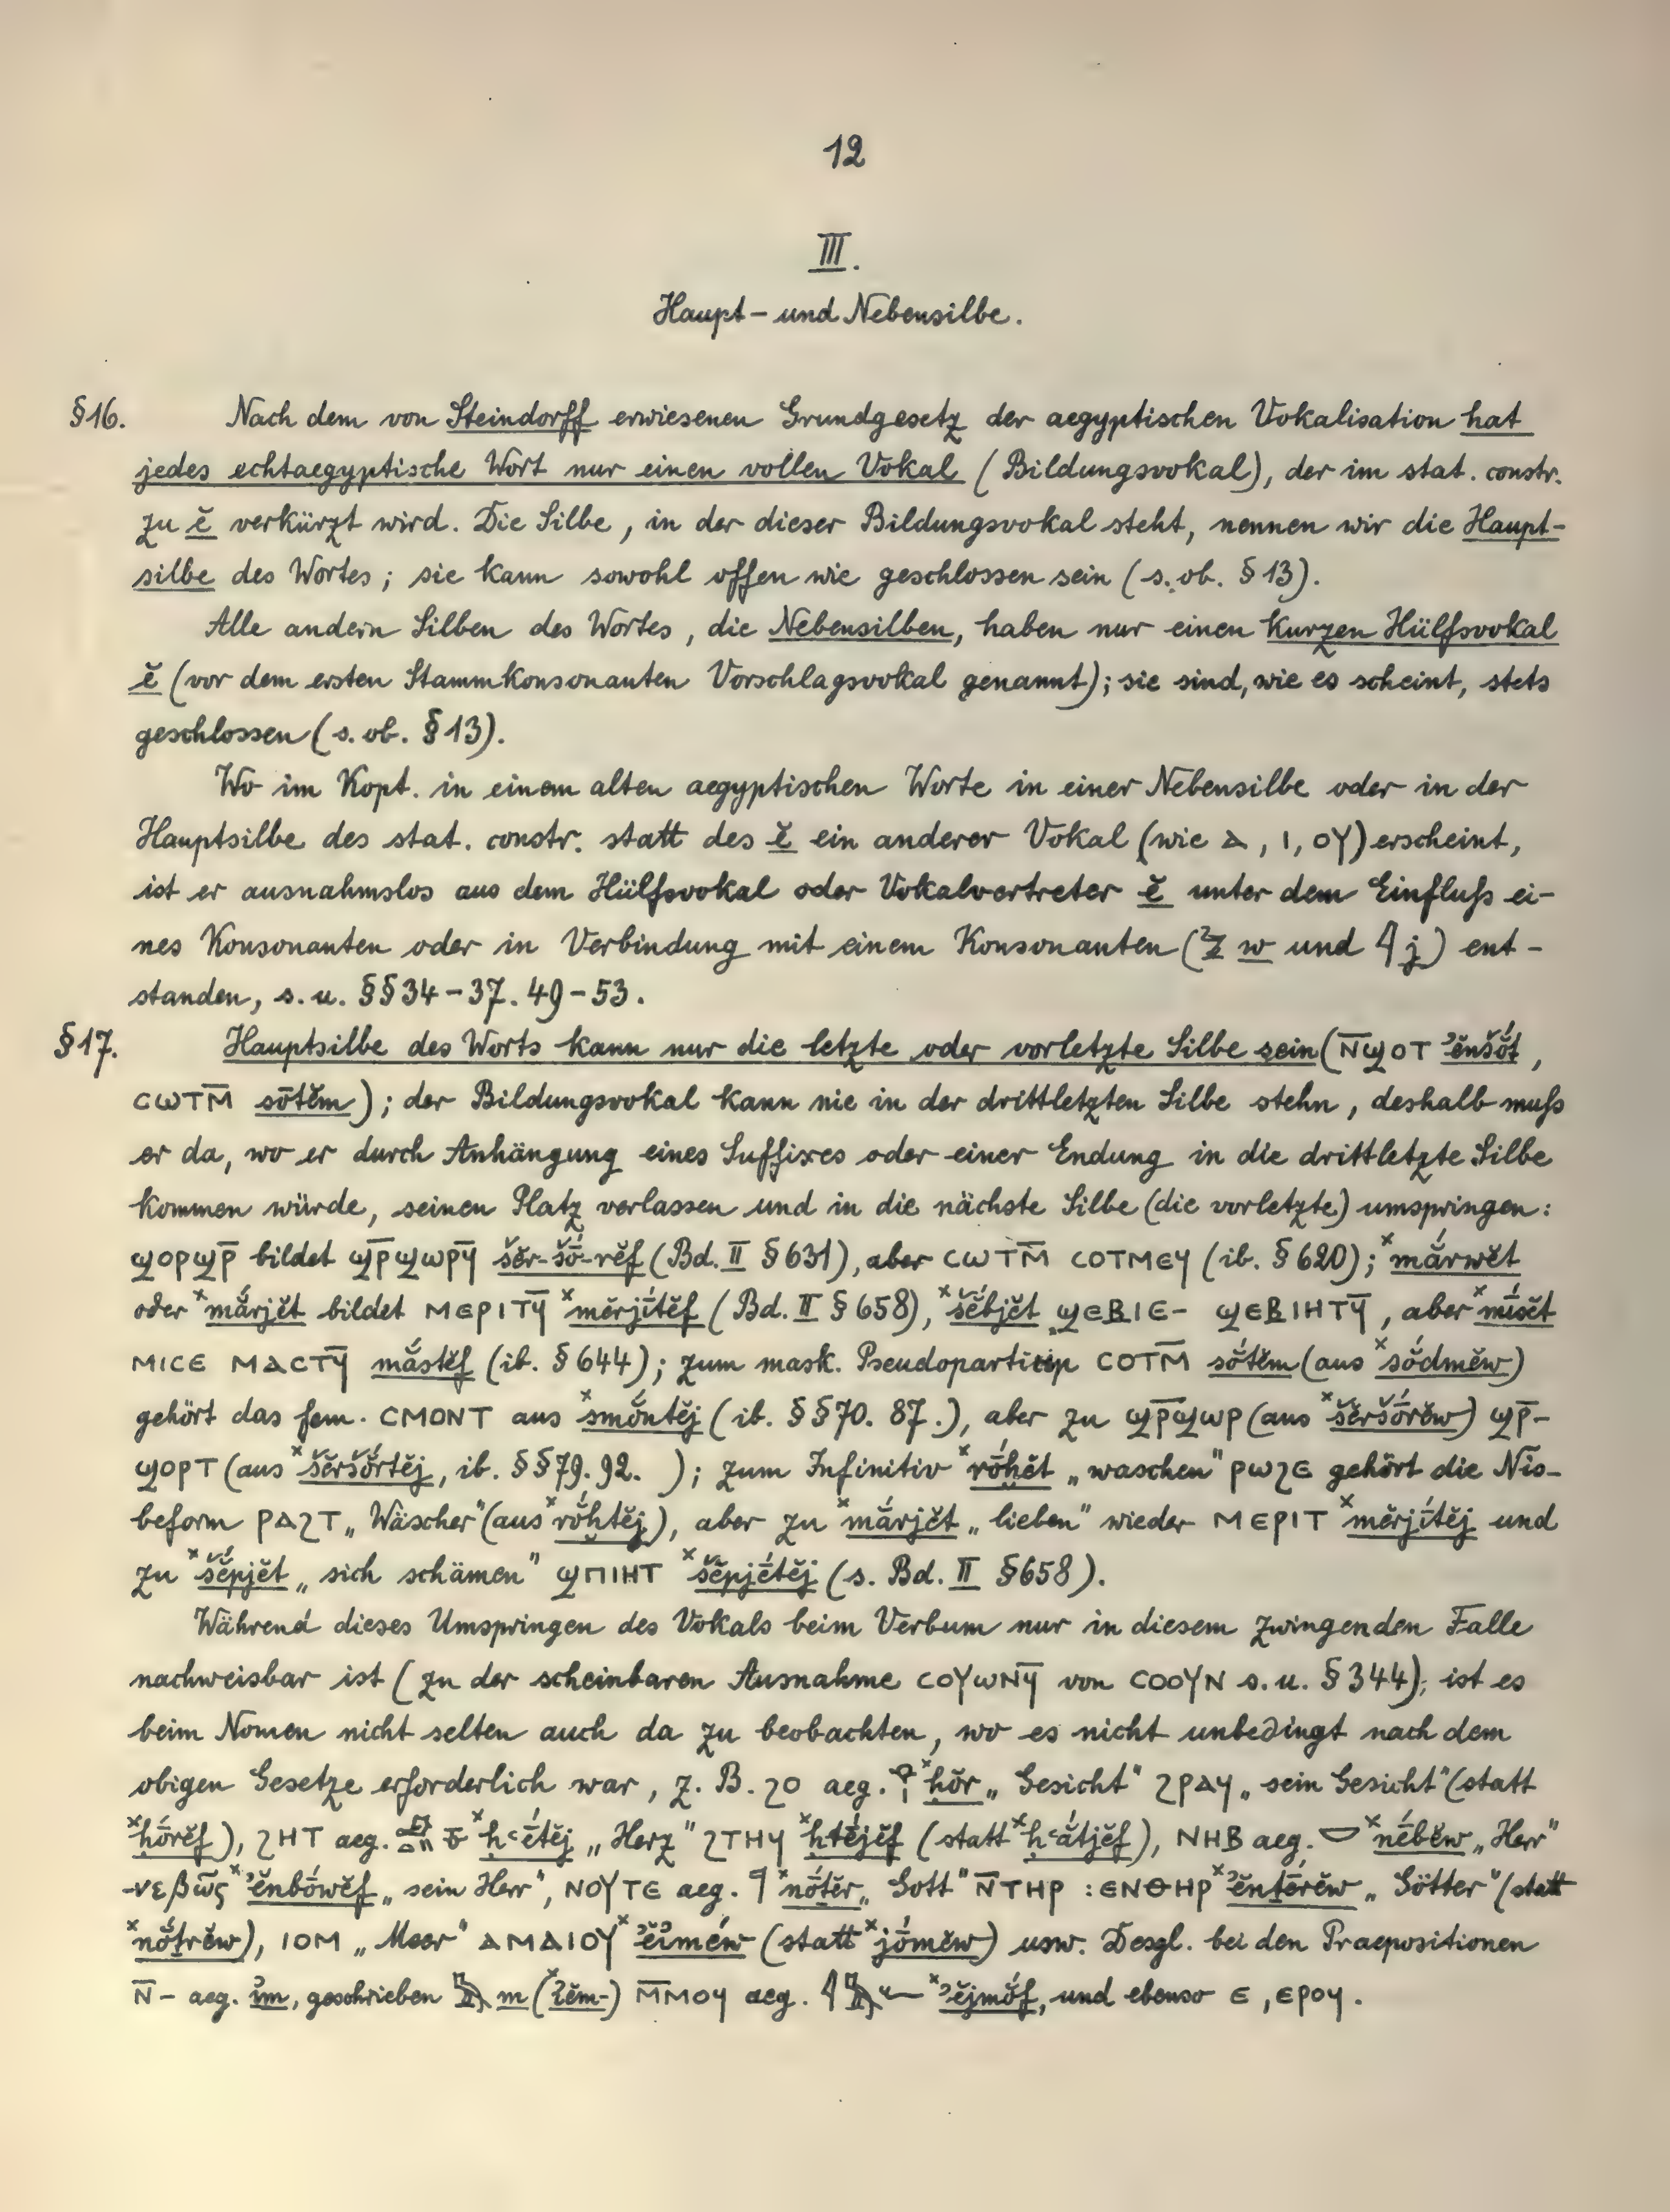 12
III.
Haupt- und Nebensilbe.
§16. Nach dem von Steindorff erwiesenen Grundgesetz der aegyptischen Vokalisation hat
jedes echtaegyptische Wort nur einen vollen Vokal (Bildungsvokal), der im stat. constr.
zu ĕ verkürzt wird. Die Silbe, in der dieser Bildungsvokal steht, nennen wir die Haupt-
silbe des Wortes; sie kann sowohl offen wie geschlossen sein (s. ob. §13).
Alle andern Silben des Wortes, die Nebensilben, haben nur einen kurzen Hülfsvokal
ĕ (vor dem ersten Stammkonsonanten Vorschlagsvokal genannt); sie sind, wie es scheint, stets
geschlossen (s. ob. §13).
Wo im Kopt. in einem alten aegyptischen Worte in einer Nebensilbe oder in der
Hauptsilbe des stat. constr. statt des ĕ ein anderer Vokal (wie ⲁ, ⲓ, ⲟⲩ) erscheint,
ist er ausnahmslos aus dem Hülfsvokal oder Vokalvertreter ĕ unter dem Einfluß ei-
nes Konsonanten oder in Verbindung mit einem Konsonanten (𓏲 w und 𓇋 j) ent-
standen, s. u. §§34-37. 49-53.
§17. Hauptsilbe des Worts kann nur die letzte oder vorletzte Silbe sein (ⲛ̅ϣⲟⲧ ʾĕnšŏ́t,
ⲥⲱⲧⲙ̅ sōtĕm); der Bildungsvokal kann nie in der drittletzten Silbe stehn, deshalb muß
er da, wo er durch Anhängung eines Suffixes oder einer Endung in die drittletzte Silbe
kommen würde, seinen Platz verlassen und in die nächste Silbe (die vorletzte) umspringen:
ϣⲟⲣϣⲣ̅ bildet ϣⲣ̅ϣⲱⲣϥ̅ šĕr-šō-rĕf (Bd. II §631), aber ⲥⲱⲧⲙ̅ ⲥⲟⲧⲙⲉϥ (ib. §620); ˣmắrwĕt
oder ˣmắrjĕt bildet ⲙⲉⲣⲓⲧϥ̅ ˣmĕrjítĕf (Bd. II §658), ˣšĕ́bjĕt ϣⲉⲃⲓⲉ- ϣⲉⲃⲓⲏⲧϥ̅, aber ˣmísĕt
ⲙⲓⲥⲉ ⲙⲁⲥⲧϥ̅ mắstĕf (ib. §644); zum mask. Pseudoparticip ⲥⲟⲧⲙ̅ sŏ́tĕm (aus ˣsŏ́dmĕw)
gehört das fem. ⲥⲙⲟⲛⲧ aus ˣsmŏ́ntĕj (ib. §§70. 87.), aber zu ϣⲣ̅ϣⲱⲣ (aus ˣšĕršṓrĕw) ϣⲣ̅-
ϣⲟⲣⲧ (aus ˣšĕršŏ́rtĕj, ib. §§79. 92. ); zum Infinitiv ˣrṓḥĕt „waschen" ⲣⲱϩⲉ gehört die Nis-
beform ⲣⲁϩⲧ „Wäscher" (aus ˣrŏ́ḥtĕj), aber zu ˣmắrjĕt „lieben" wieder ⲙⲉⲣⲓⲧ ˣmĕrjítĕj und
zu ˣšĕ́pjĕt „sich schämen" ϣⲡⲓⲏⲧ ˣšĕpjḗtĕj (s. Bd. II §658).
Während dieses Umspringen des Vokals beim Verbum nur in diesem zwingenden Falle
nachweisbar ist (zu der scheinbaren Ausnahme ⲥⲟⲩⲱⲛϥ̅ von ⲥⲟⲟⲩⲛ s. u. §344), ist es
beim Nomen nicht selten auch da zu beobachten, wo es nicht unbedingt nach dem
obigen Gesetze erforderlich war, z. B. ϩⲟ aeg. 𓁷 ˣḥŏr „Gesicht" ϩⲣⲁϥ „sein Gesicht" (statt
ˣḥṓrĕf), ϩⲏⲧ aeg. ˣḥʿḗtĕj „Herz" ϩⲧⲏϥ ˣḥtḗjĕf (statt ˣḥʿắtjĕf), ⲛⲏⲃ aeg. 𓎟 ˣnḗbĕw „Herr"
-νεβῶς ˣʾĕnbṓwĕf „sein Herr", ⲛⲟⲩⲧⲉ aeg. 𓊹 ˣnṓtĕr „Gott" ⲛ̅ⲧⲏⲣ : ⲉⲛⲑⲏⲣ ˣʾĕntḗrĕw „Götter" (statt
ˣnŏ́trĕw), ⲓⲟⲙ „Meer" ⲁⲙⲁⲓⲟⲩ ˣʾĕimĕ́w (statt ˣjṓmĕw) usw. Desgl. bei den Praepositionen
ⲛ̅- aeg. ỉm, geschrieben 𓅓 m (ʾĕm-) ⲙ̅ⲙⲟϥ aeg. 𓇋𓅓𓆑 ˣʾĕjmŏ́f, und ebenso ⲉ, ⲉⲣⲟϥ.